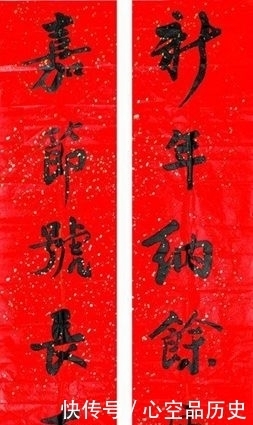 新年納餘
嘉節號長
快传号／心空品历史